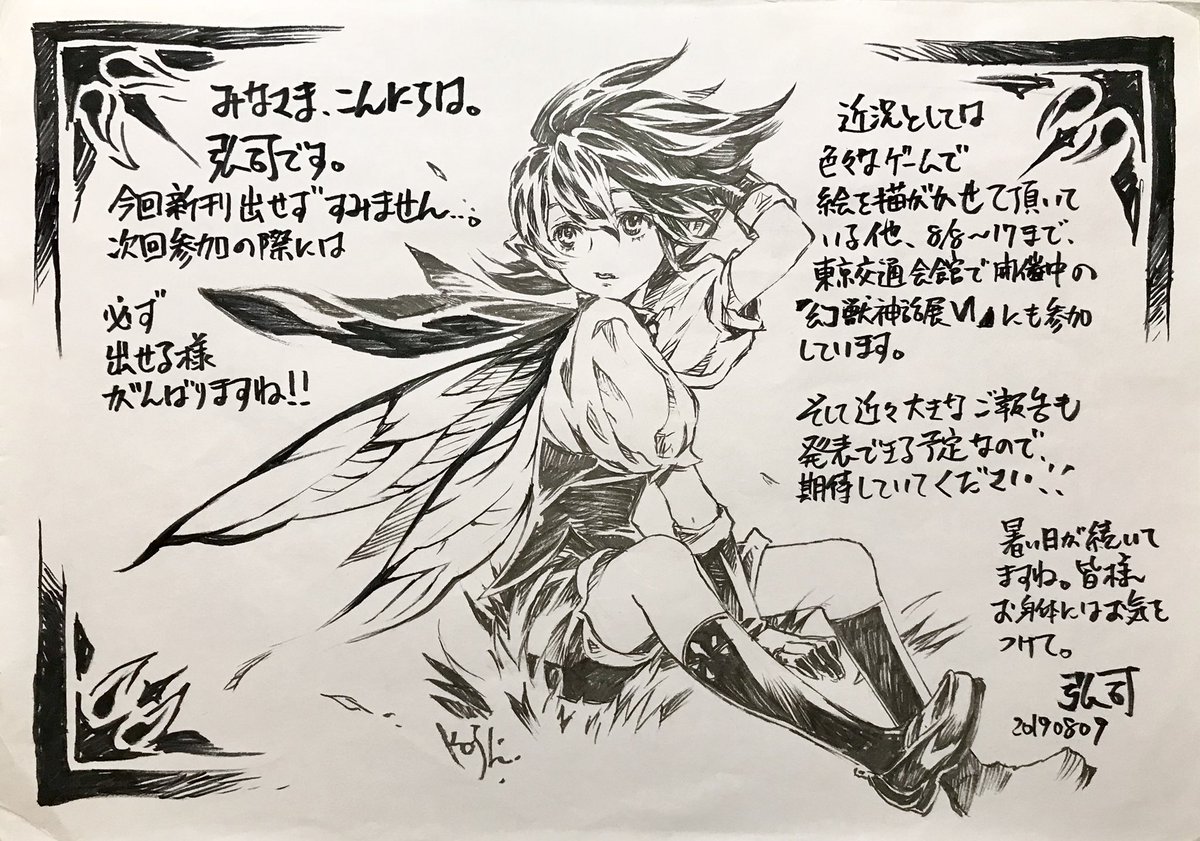 みなさま、こんにちは。
弘司です。
今回新刊出せずすみません…。
次回参加の際には
必ず
出せる様
がんばりますね!!
近況としては
色々なゲームで
絵を描かせて頂いて
いる他、8/8〜17まで、
東京交通会館で開催中の
『幻獣神話展Ⅵ』にも参加
しています。
そして近々大きなご報告も
発表できる予定なので、
期待していてください!!
暑い日が続いて
ますね。皆様
お身体にはお気を
つけて。
弘司
20190809
Koshi.